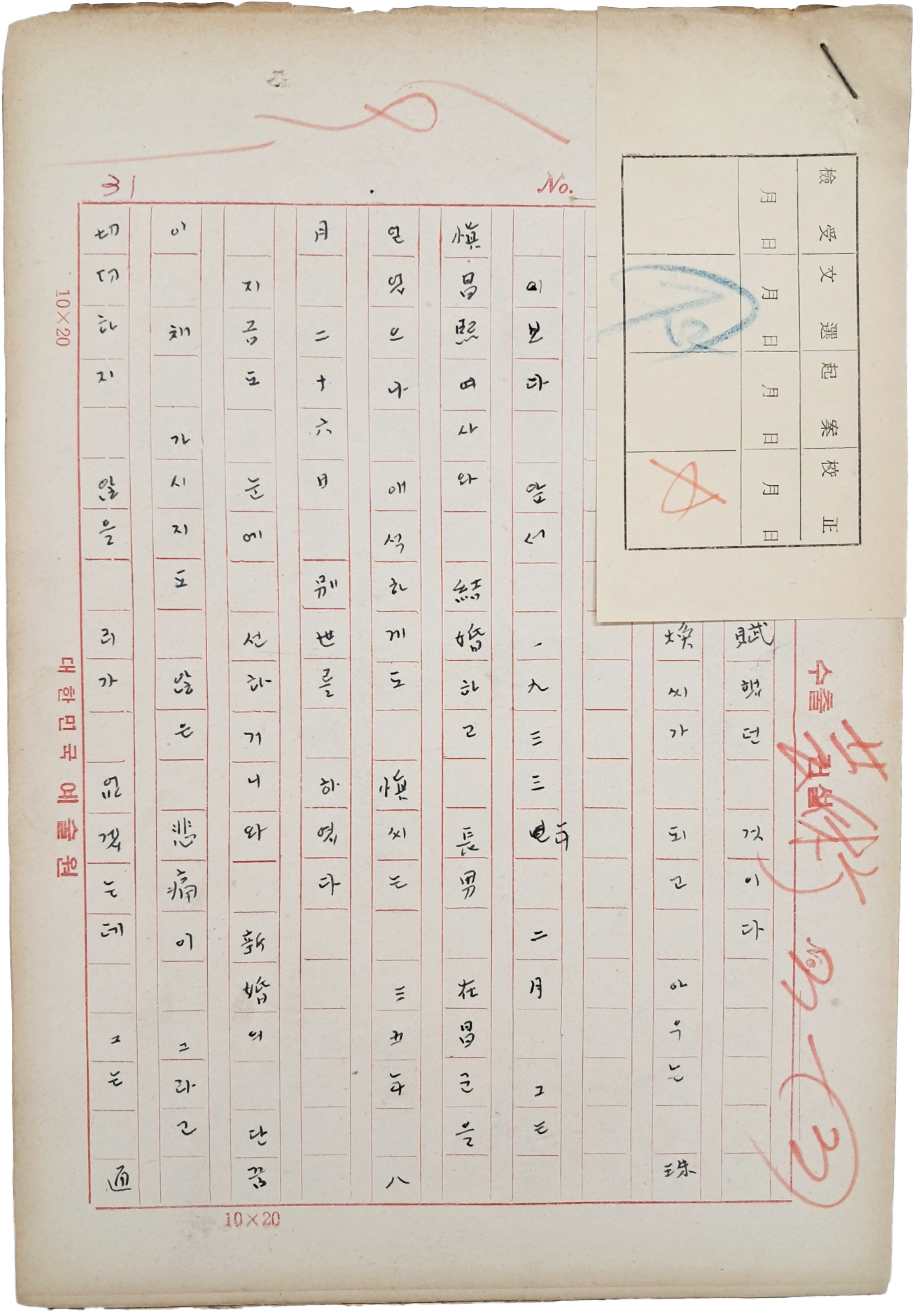 檢受 文選 起案 校正
月日 月日 月日 月日
No. 31
賦했던 것이다
煥씨가 되고 아우는 珠
이보다 앞서 一九三三年 二月 그는
愼昌熙여사와 結婚하고 長男 在昌군을
얻었으나 애석하게도 愼씨는 三五年 八
月 二十六日 別世를 하였다
지금도 눈에 선하거니와 新婚의 단꿈
이 채 가시지도 않은 悲痛이 그라고
切切하지 않을 리가 없겠는데 그는 通
10×20
대한민국예술원
10×20